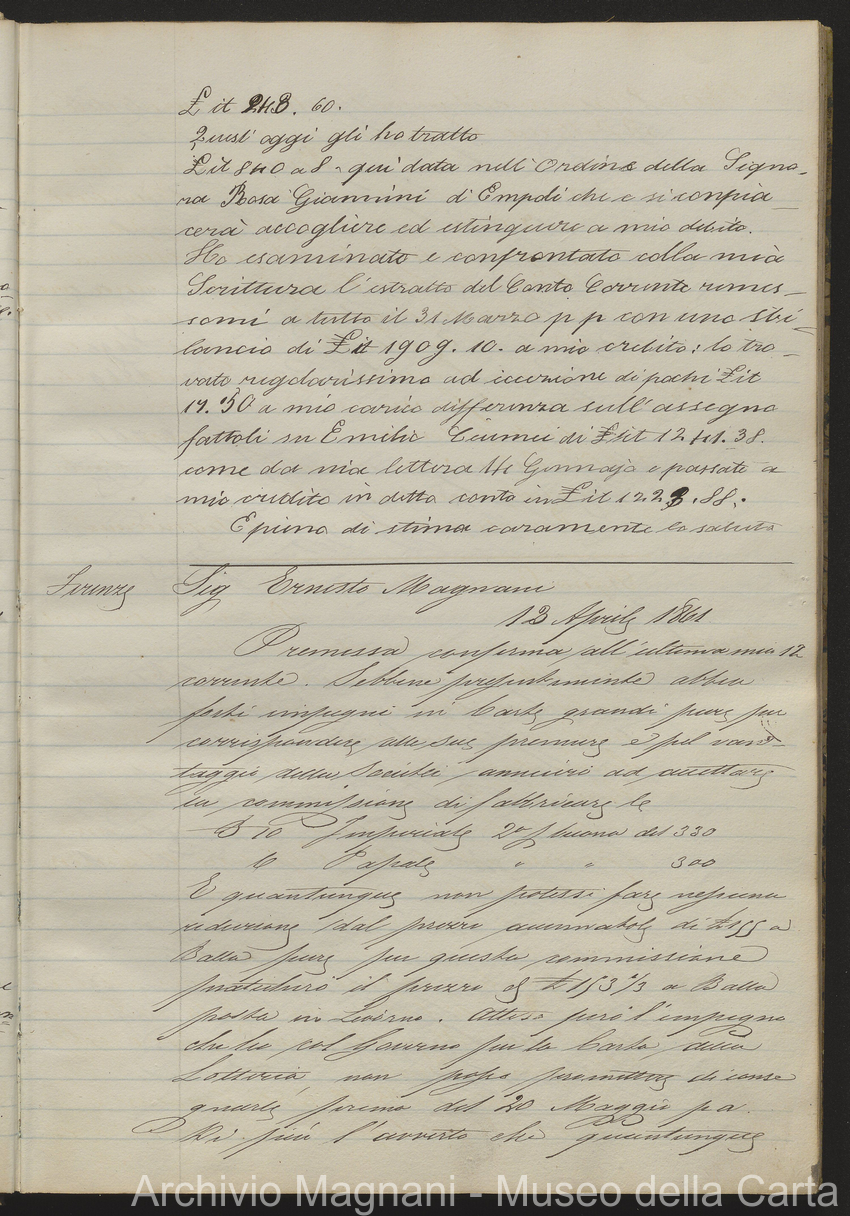 £ it 248. 60.
Quest' oggi gli ho tratto
£it 840 a 8 - qui data nell' Ordine della Signo-
ra Rosa Giannini d'Empoli che e si compia-
cerà accogliere ed estinguere a mio debito.
Ho esaminato e confrontato colla mia
Scrittura l'estratto del Conto Corrente rimes-
somi a tutto il 31 Marzo p p con uno sbi-
lancio di £it 1909. 10. a mio credito; lo tro-
vato regolarissimo ad eccezione di pochi £it
17. 50 a mio carico differenza sull'assegno
fattoli su Emilio di £it 1241. 38.
come da mia lettera 14 Gennajo e passate a
mio credito in detto conto in £it 1223. 88.
E pieno di stima caramente la saluto
Firenze Sig Ernesto Magnani
13 Aprile 1861
Premessa conferma all'ultima mia 12
corrente. Sebbene presentemente abbia
forti impegni in Carte grandi pure per
corrispondere alle sue premure e pel van-
taggio della Società annuirò ad accettare
la commissione di fabbricare le
B 70 Imperiale 2a f buona del 330
6 Papale " " 300
E quantunque non potessi fare nessuna
reduzione dal prezzo accennatole di £ 155 a
Balla pure per questa commissione
praticherò il prezzo di £ 153 1/3 a Balla
posta in Livorno. Atteso però l'impegno
che ho col Governo per la Carta della
Lotteria, non posso promettere di conse
gnarle prima del 20 Maggio pa.
Di più l'avverto che quantunque
Archivio Magnani - Museo della Carta